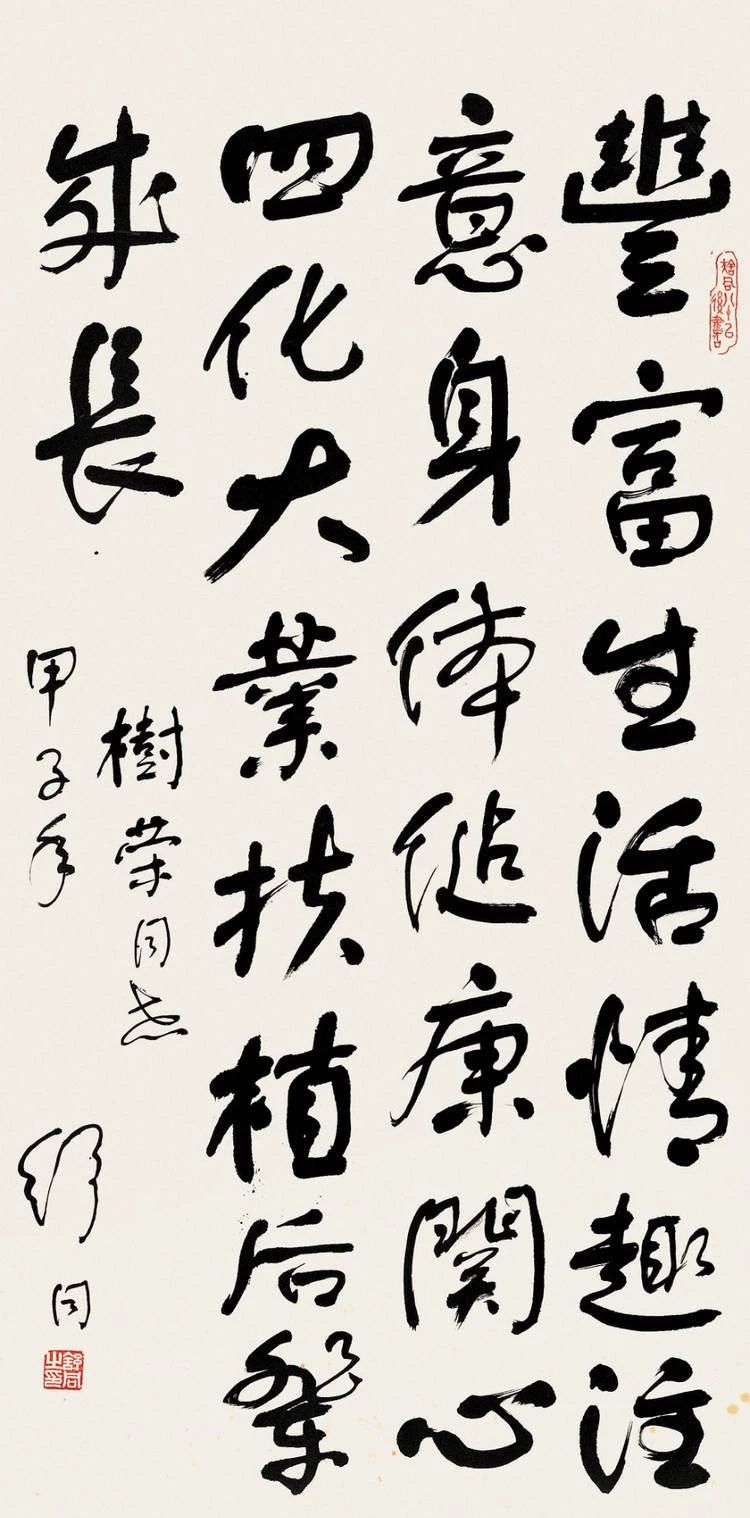 豐富生活情趣注
意身体健康關心
四化大業扶植后輩
成長
樹荣同志
甲子年
舒同
舒同之印